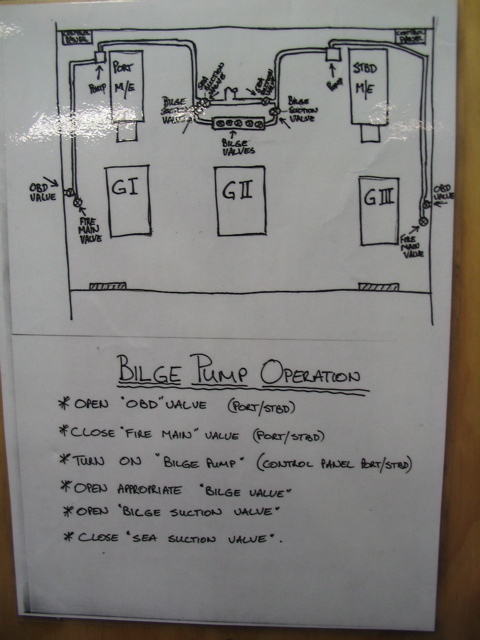 CONTROL PANEL
CONTROL PANEL
PORT M/E
STBD M/E
PUMP
PUMP
SEA SUCTION VALVE
SEA SUCTION VALVE
BILGE SUCTION VALVE
BILGE SUCTION VALVE
BILGE VALVES
OBD VALVE
OBD VALVE
FIRE MAIN VALVE
FIRE MAIN VALVE
GI
GII
GIII
BILGE PUMP OPERATION
* OPEN "OBD" VALVE (PORT/STBD)
* CLOSE "FIRE MAIN" VALVE (PORT/STBD)
* TURN ON "BILGE PUMP" (CONTROL PANEL PORT/STBD)
* OPEN APPROPRIATE "BILGE VALVE"
* OPEN "BILGE SUCTION VALVE"
* CLOSE "SEA SUCTION VALVE".